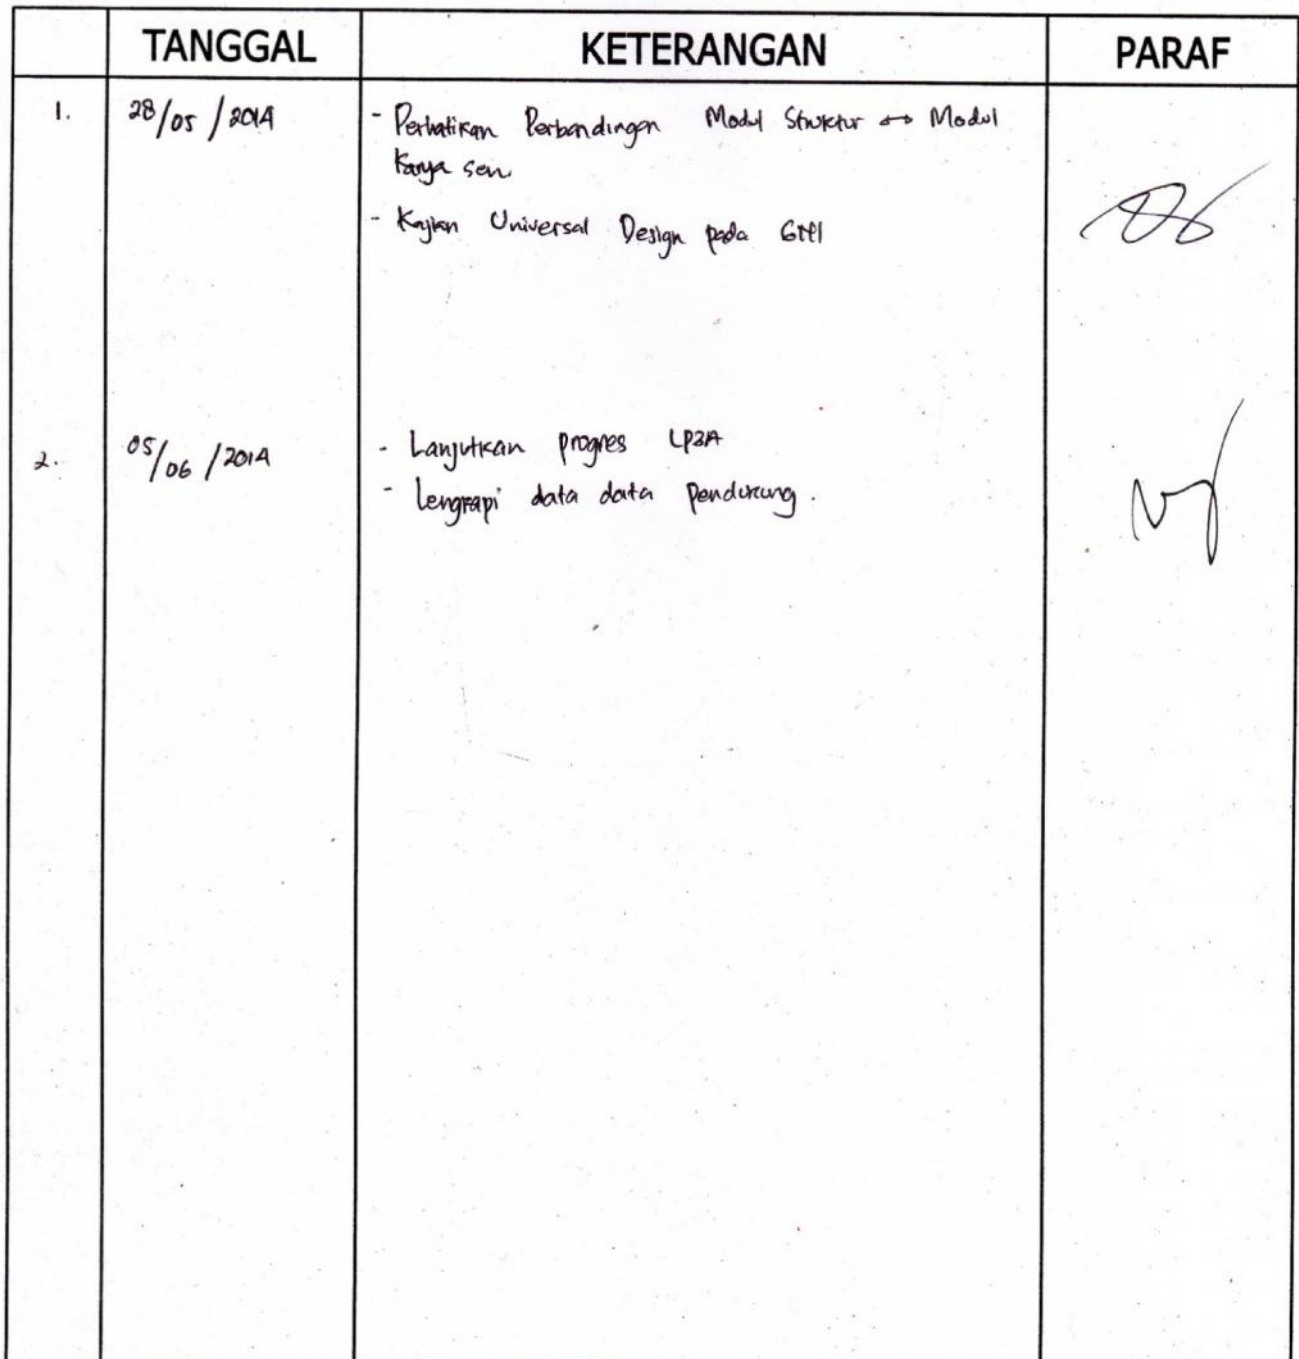 TANGGAL KETERANGAN PARAF
1. 28/05/2014 - Perhatikan Perbandingan Modul Struktur ↔ Modul
Karya seni
- Kajian Universal Design pada
2. 05/06/2014 - Lanjutkan progres LP3A
- Lengkapi data data pendukung.